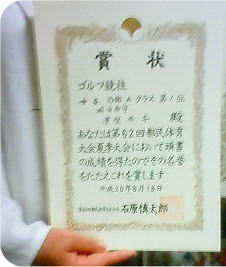 賞状
ゴルフ競技
の部Aクラス第1位
殿
あなたは第62回都民体育
大会夏季大会において頭書
の成績を得たのでその名誉
をたたえこれを賞します
平成20年8月18日
石原慎太郎